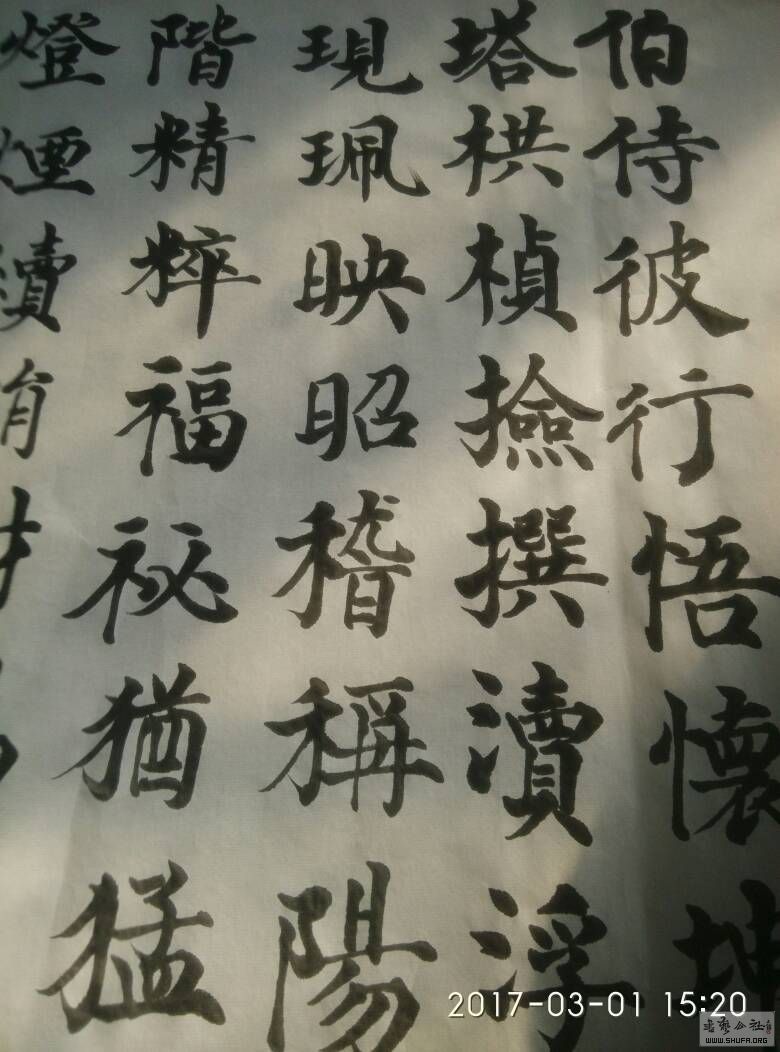 伯侍彼行悟懷坤
塔栱楨撿撰瀆浮
現珮映昭稽稱陽
階精粹福祕猶猛
燈煙續
2017-03-01 15:20
书艺公社
WWW.SHUFA.ORG